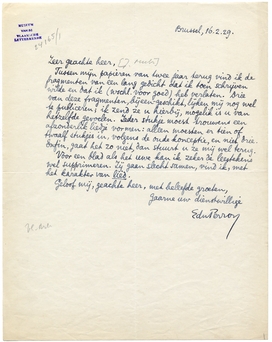 MUSEUM
VAN DE
VLAAMSCHE
LETTERKUNDE
Brussel, 16.2.29.
Zeer geachte heer,
Tusschen mijn papieren van twee jaar terug vind ik de
fragmenten van een lang gedicht dat ik toen schrijven
wilde en dat ik (wschl. voor goed) heb verlaten. Drie
van deze fragmenten, bijeengeschikt, lijken mij nog wel
te publiceeren; ik zend ze u hierbij, mogelik is u van
hetzelfde gevoelen. Ieder stukje moest trouwens een
afzonderlik liedje vormen: alleen moesten er tien of
twaalf stukjes in, volgens de oude konceptie, en niet drie.
Enfin, gaat het zoo niet dan stuurt u ze mij wel terug.
Voor een blad als het uwe kan ik zeker de leesteekens
wel supprimeeren. Zij gaan slecht samen, vind ik, met
het karakter van lied.
Geloof mij, geachte heer, met beleefde groeten,
gaarne uw dienstwillige
EduPerron